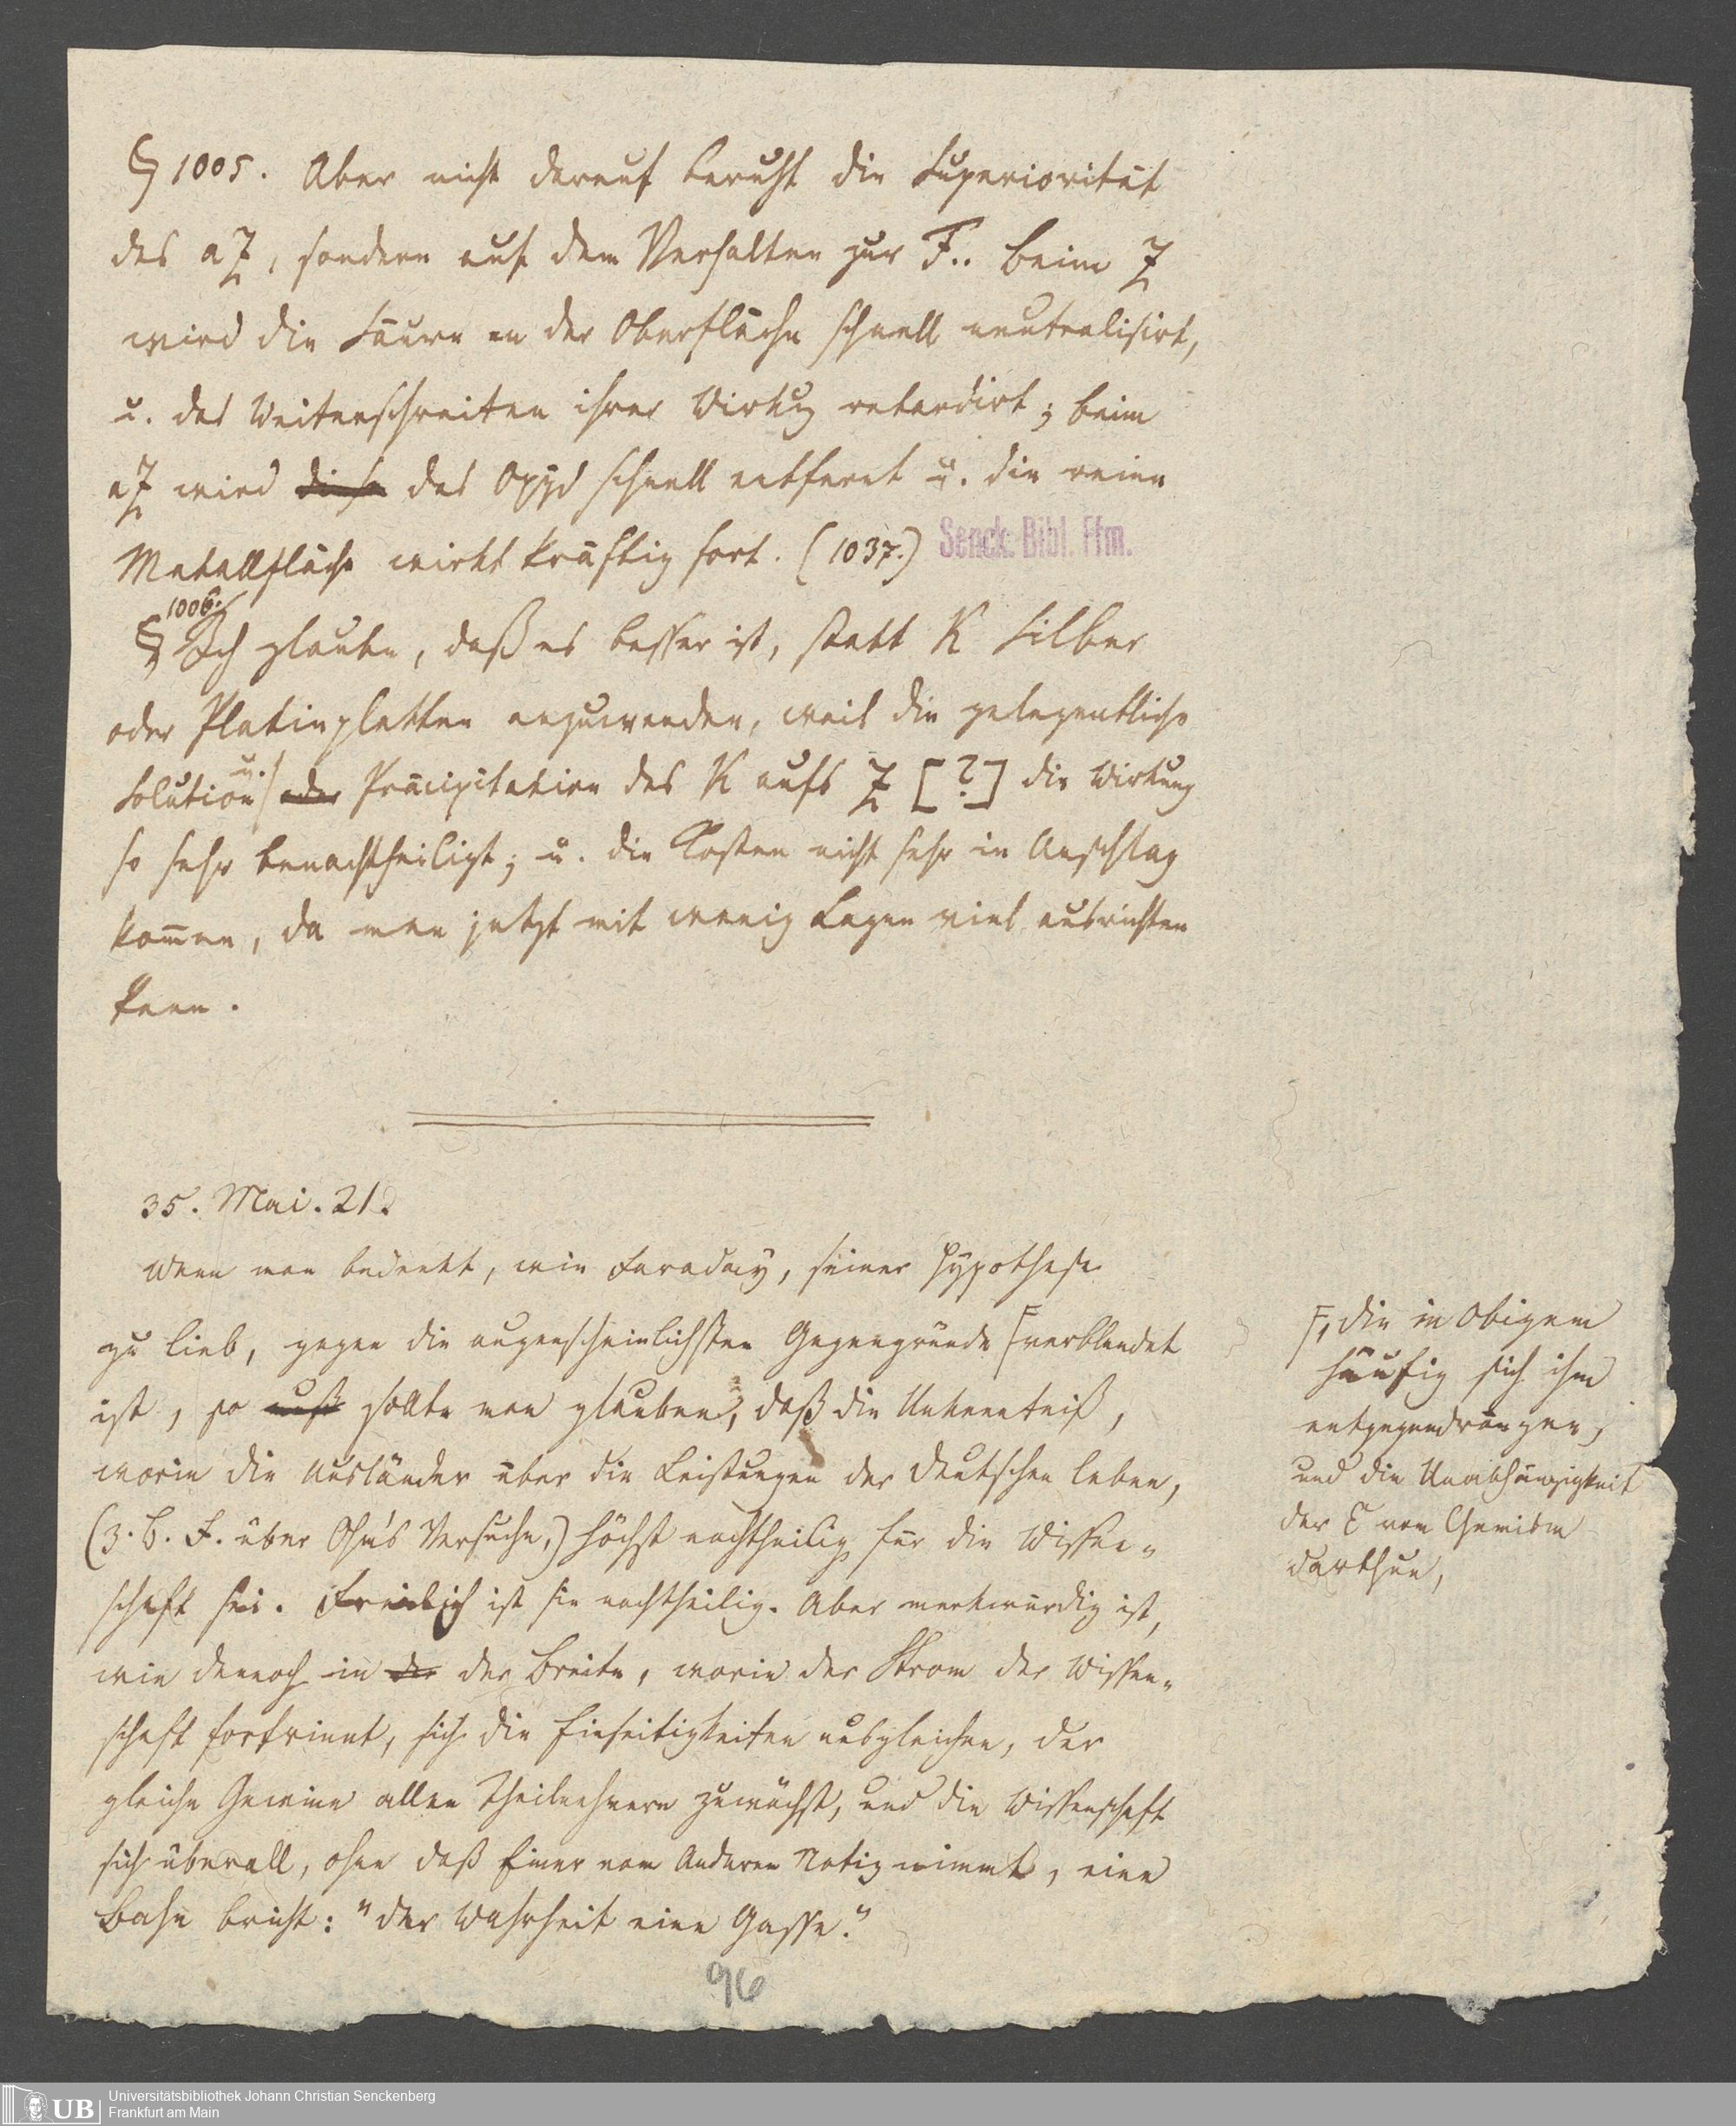 § 1005. Aber nicht darauf beruht die Superiorität
des aZ, sondern auf dem Verhalten zur F.. Beim Z
wird die Säure an der Oberfläche schnell neutralisirt,
u. das Weiterschreiten ihrer Wirkug retardirt; beim
aZ wird diese das Oxyd schnell entfernt u. die reine
Metallfläche wirkt kräftig fort. (1037.)
Senck. Bibl. Ffm.
1006.
§ Ich glaube, daß es besser ist, statt K Silber
oder Platinplatten anzuwenden, weil die gelegentliche
Solution u. oder Präcipitation des K aufs Z [?] die Wirkung
so sehr benachtheiligt; u. die Kosten nicht sehr in Anschlag
kom̄en, da man jetzt mit wenig Lagen viel ausrichten
kann.
35. Mai. 21.
Wenn man bedenkt, wie Faraday, seiner Hypothese
zu lieb, gegen die augenscheinlichsten Gegengründe verblendet
ist, so muß sollte man glauben, daß die Unkenntniß,
worin die Ausländer über die Leistungen der Deutschen leben,
(z. B. F. über Ohm's Versuche,) höchst nachtheilig für die Wissen-
schaft sei. Freilich ist sie nachtheilig. Aber merkwürdig ist,
wie dennoch in der der Breite, worin der Strom der Wissen-
schaft fortrinnt, sich die Einseitigkeiten ausgleichen, der
gleiche Gewinn allen Theilnehmern zuwächst, und die Wissenschaft
sich überall, ohne daß Einer vom Anderen Notiz nimmt, eine
Bahn bricht: "der Wahrheit eine Gasse."
, die in Obigem
häufig sich ihm
entgegendrängen,
und die Unabhängigkeit
der E vom Chemism
darthun,
96
UB
Universitätsbibliothek Johann Christian Senckenberg
Frankfurt am Main